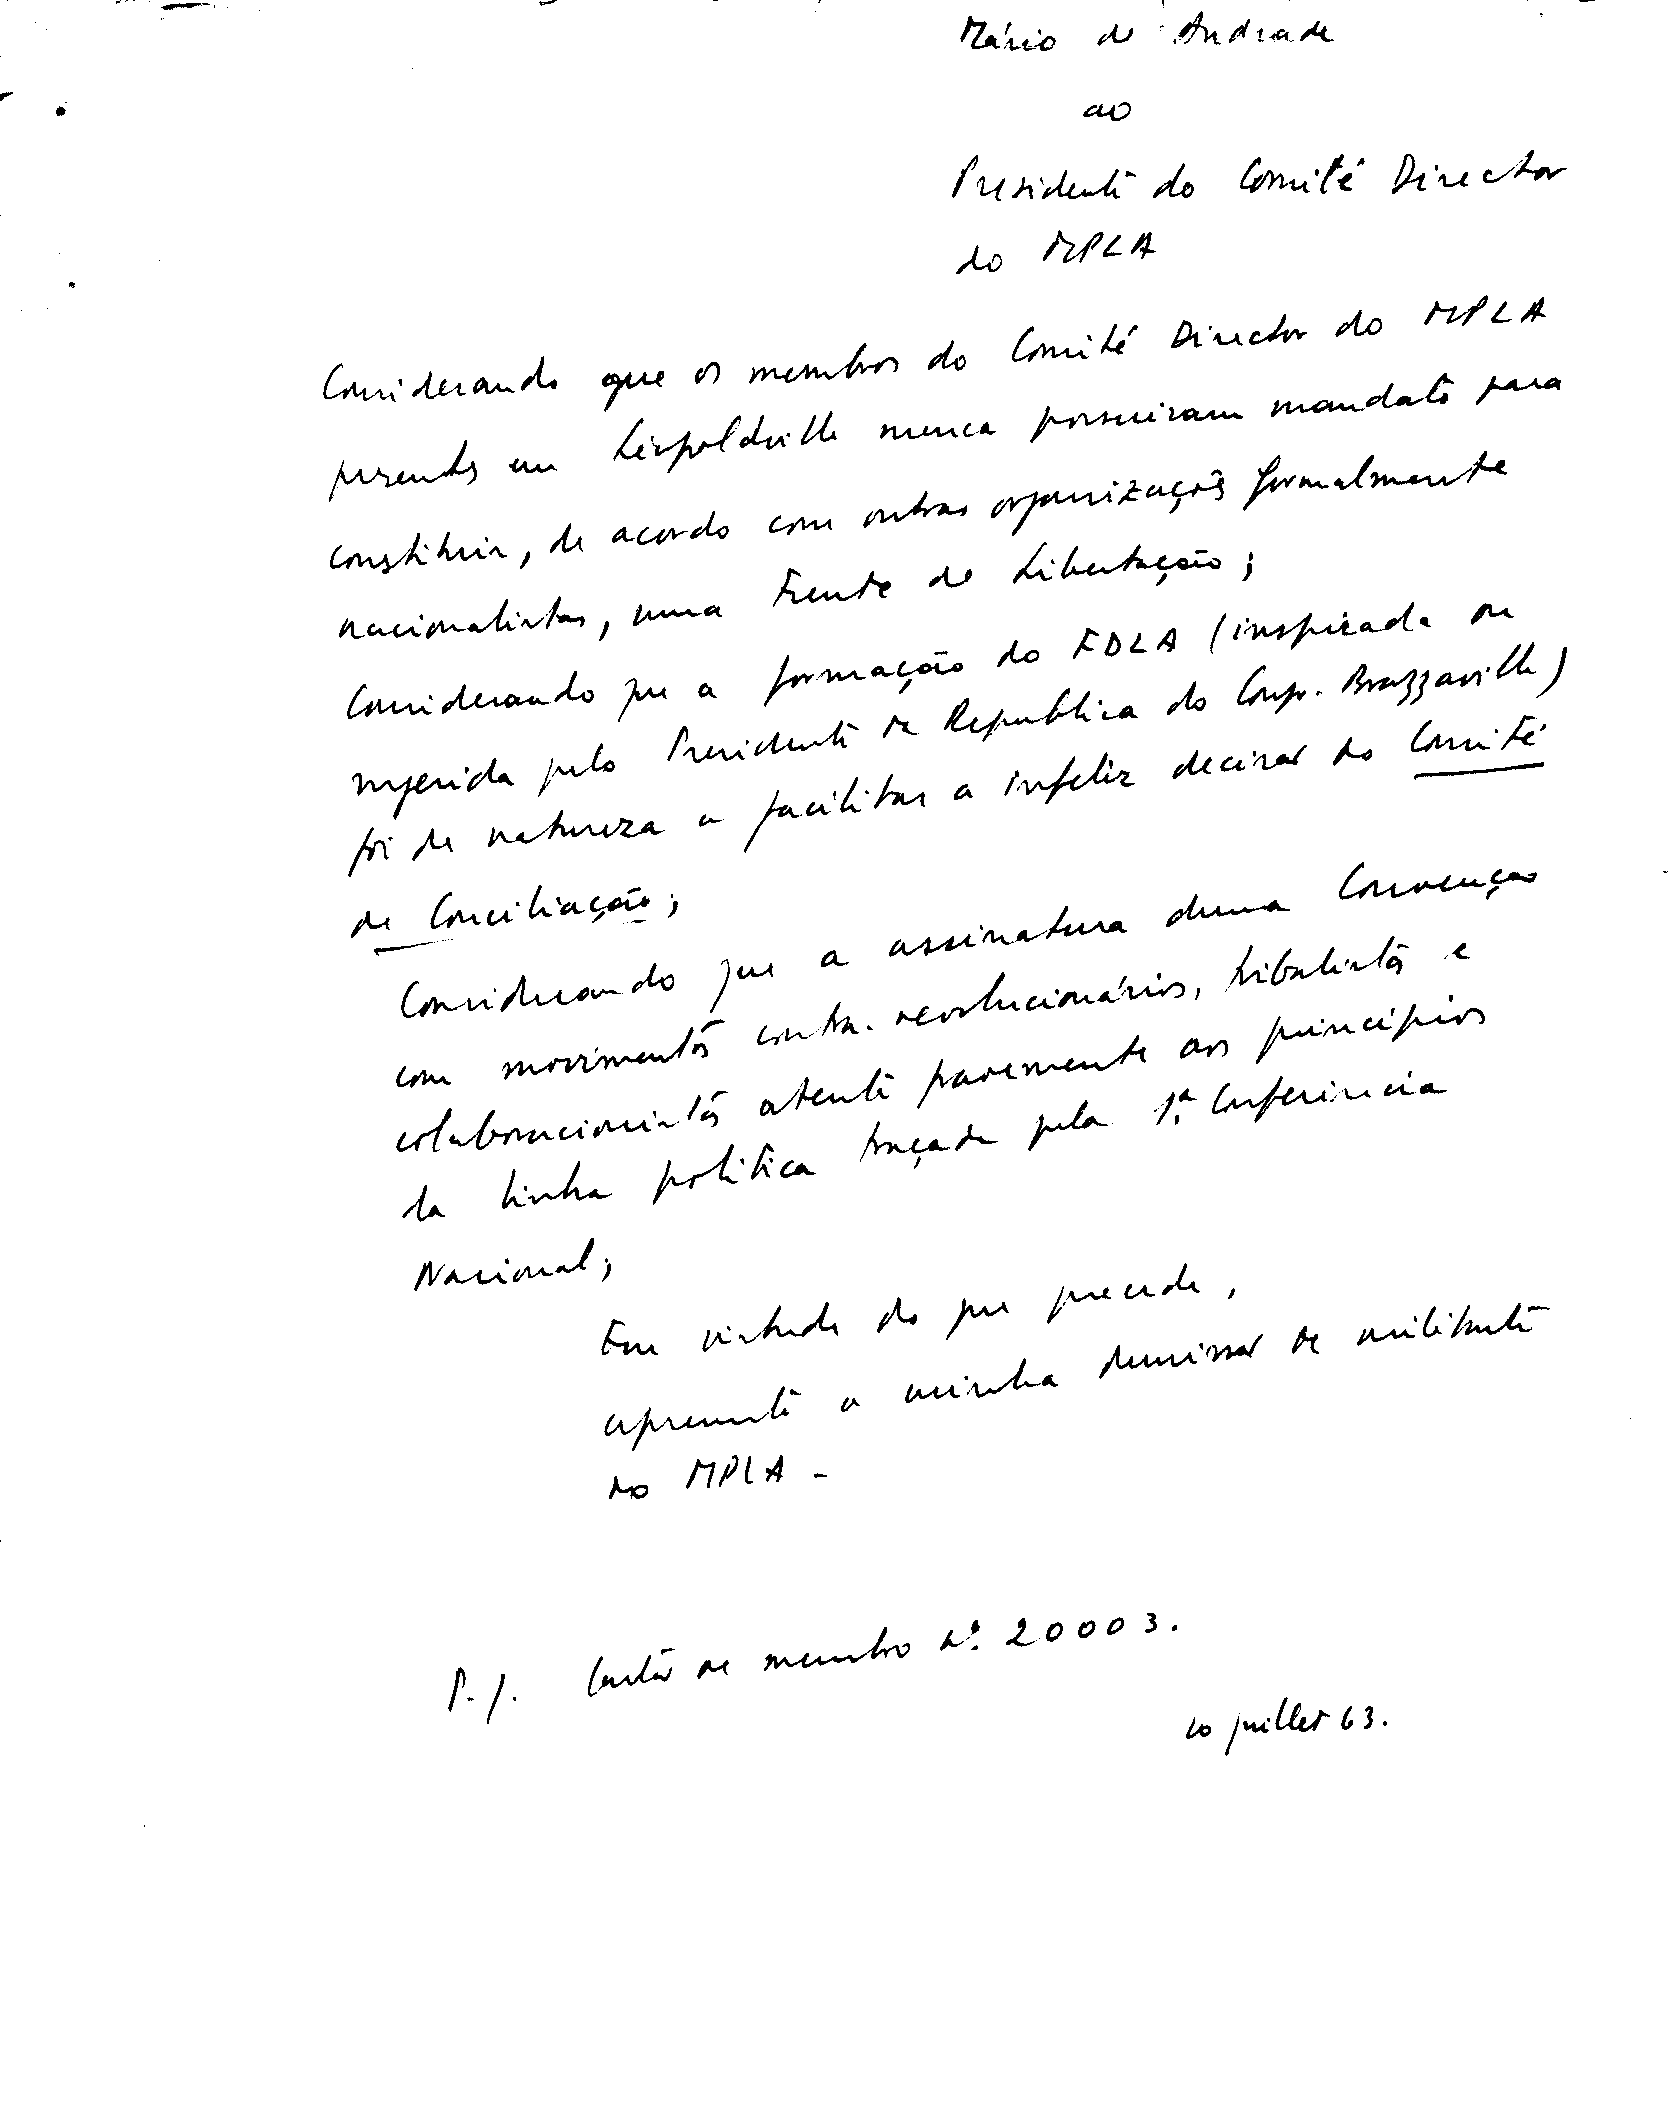 Mário de Andrade
ao
Presidente do Comité Director
do MPLA
Considerando que os membros do Comité Director do MPLA
presentes em Léopoldville nunca possuiram mandato para
constituir, de acordo com outras organizações formalmente
nacionalistas, uma Frente de Libertação;
Considerando que a formação do FDLA (inspirada ou
sugerida pelo Presidente da Republica do Congo-Brazzaville)
foi de natureza a facilitar a infeliz decisão do Comité
de Conciliação;
Considerando que a assinatura duma Convenção
com movimentos contra-revolucionários, tribalistas e
colaboracionistas atenta gravemente aos princípios
da linha politica traçada pela 1ª Conferência
Nacional;
Em virtude do que precede,
apresento a minha demissão de militante
do MPLA -
P.J. Cartão de membro Nº. 20003.
10 juillet 63.